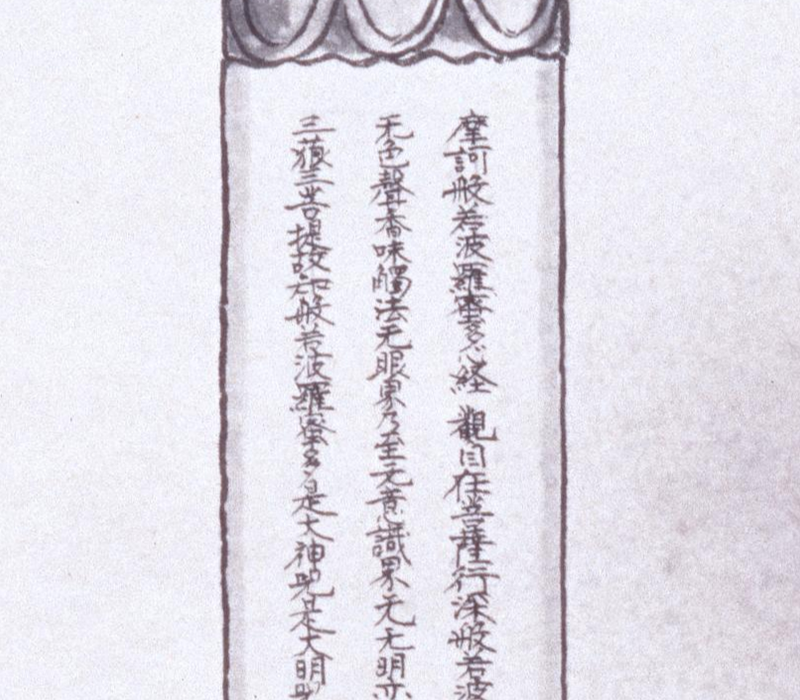 摩訶般若波羅蜜多心経 観自在菩薩行深般若波
无色聲香味觸法无眼界乃至无意識界无无明亦
三藐三菩提故知般若波羅蜜多是大神呪是大明呪